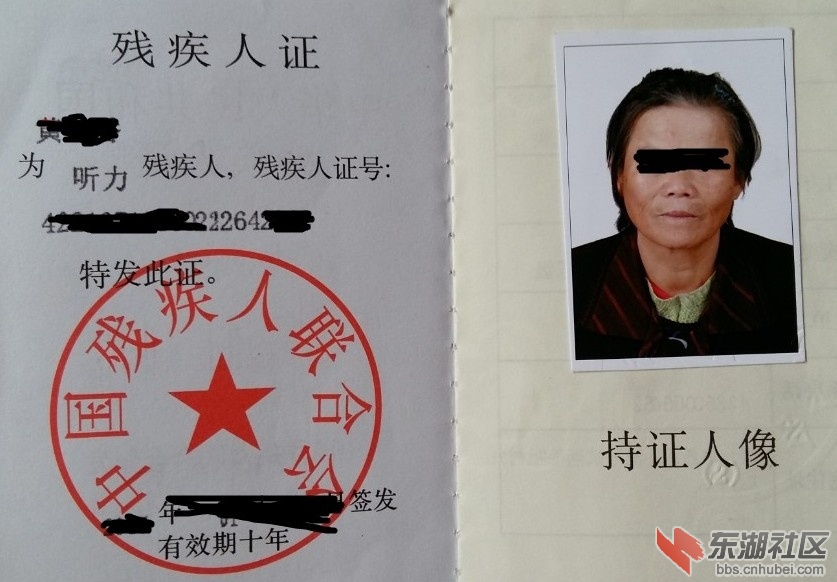 残疾人证
黄
为 听力 残疾人，残疾人证号:
特发此证。
中国残疾人联合会
年
签发
有效期十年
持证人像
东湖社区
bbs.cnhubei.com